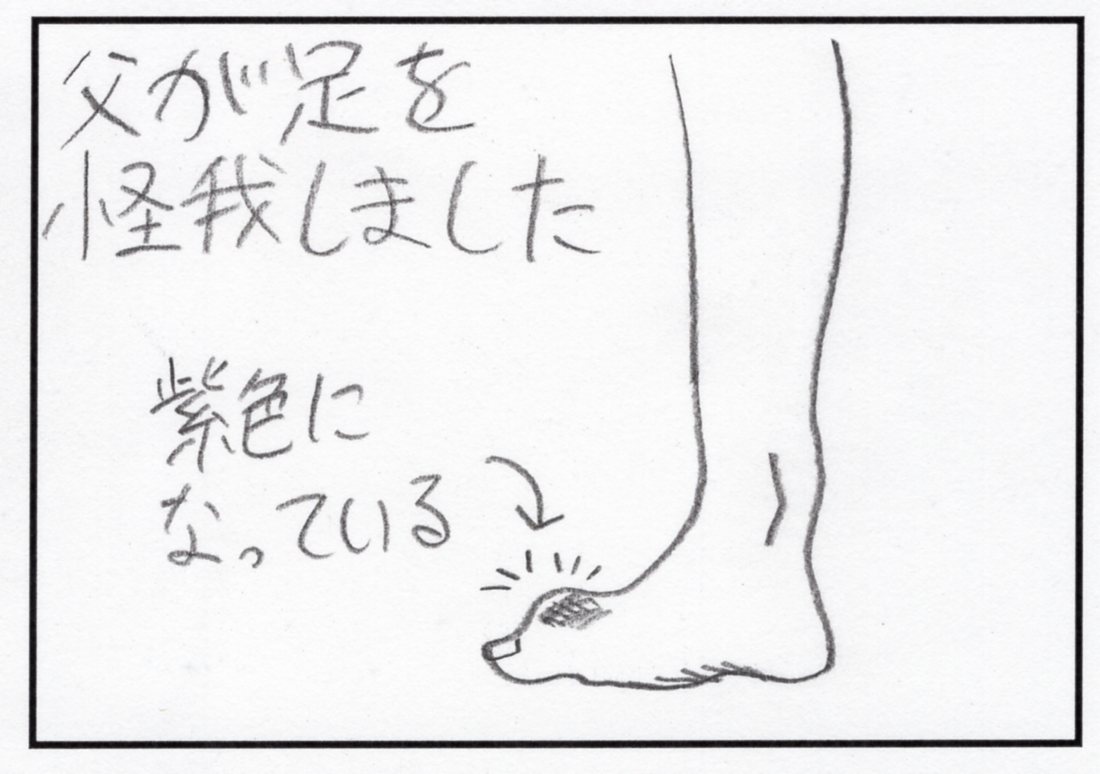 父が足を
怪我しました
紫色に
なっている